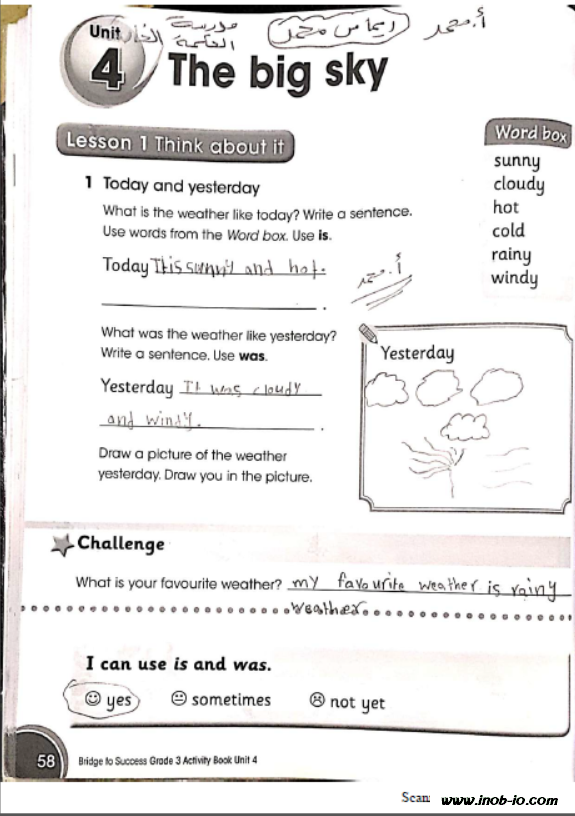 Unit
4
مدرسة
الحكمة
ريماس محمد
أ. محمد
The big sky
Lesson 1 Think about it
Word box
sunny
cloudy
hot
cold
rainy
windy
1 Today and yesterday
What is the weather like today? Write a sentence.
Use words from the Word box. Use is.
Today It is sunny and hot.
أ. محمد
.
What was the weather like yesterday?
Write a sentence. Use was.
Yesterday It was cloudy
and windy. .
Yesterday
Draw a picture of the weather
yesterday. Draw you in the picture.
Challenge
What is your favourite weather? my favourite weather is rainy
weather.
I can use is and was.
yes sometimes not yet
58 Bridge to Success Grade 3 Activity Book Unit 4
Scan www.inob-io.com